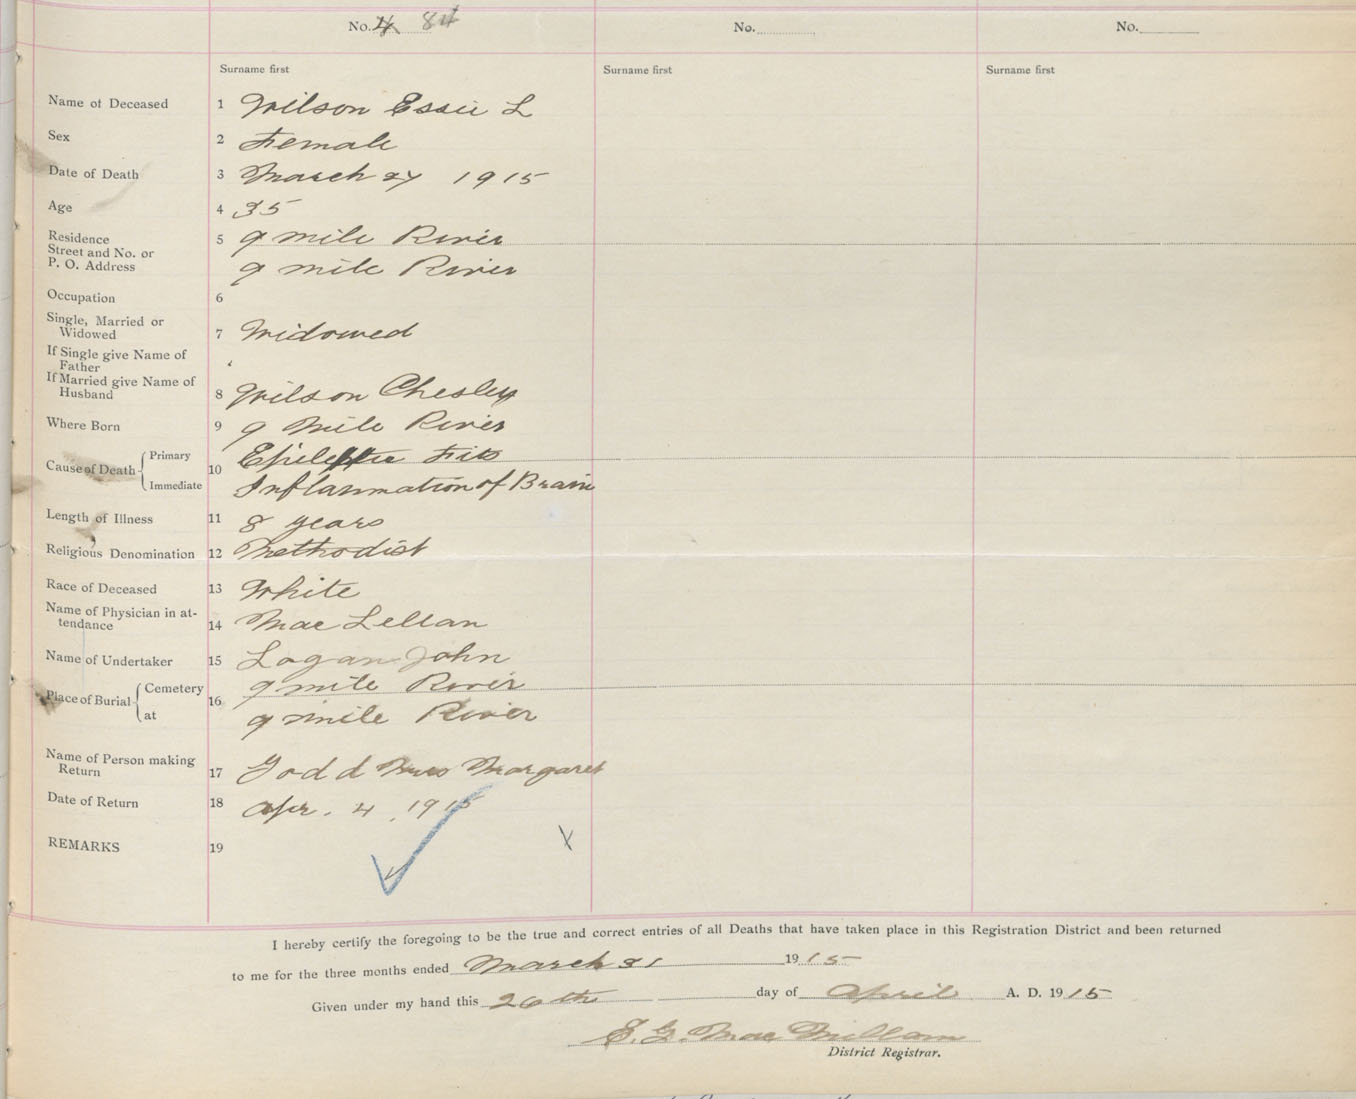 No. 4 84 No. No.
Surname first Surname first Surname first
Name of Deceased 1 Wilson Essie L
Sex 2 Female
Date of Death 3 March 27 1915
Age 4 35
Residence 5 9 mile River
Street and No. or
P. O. Address 9 mile River
Occupation 6
Single, Married or
Widowed 7 Widowed
If Single give Name of
Father
If Married give Name of
Husband 8 Wilson Chesley
Where Born 9 9 Mile River
Cause of Death Primary 10 Epileptic Fits
Immediate Inflammation of Brain
Length of Illness 11 8 years
Religious Denomination 12 Methodist
Race of Deceased 13 White
Name of Physician in at-
tendance 14 Mac Lellan
Name of Undertaker 15 Logan John
Place of Burial Cemetery 16 9 mile River
at 9 mile River
Name of Person making
Return 17 Todd Mrs Margaret
Date of Return 18 Apr. 4, 1915
REMARKS 19
I hereby certify the foregoing to be the true and correct entries of all Deaths that have taken place in this Registration District and been returned
to me for the three months ended March 31 1915
Given under my hand this 26th day of April A. D. 1915
E. G. Mac Millan
District Registrar.